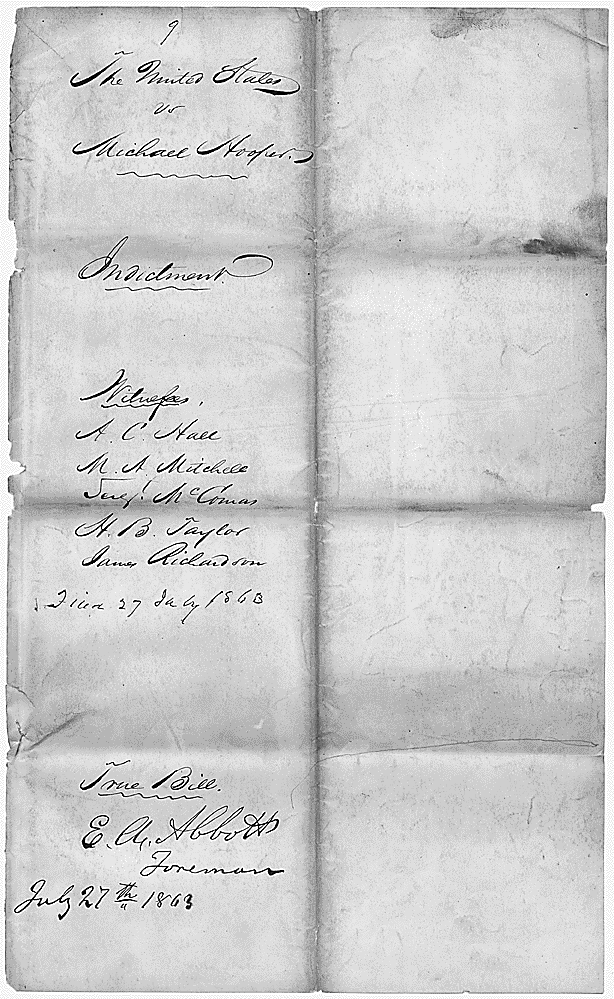 9
The United States
vs
Michael Hooper.
Indictment.
Witnesses.
A. C. Hall
M. A. Mitchell
McComas
H. B. Taylor
James Richardson
Filed 27 July 1863
True Bill.
E. A. Abbott
Foreman
July 27th 1863